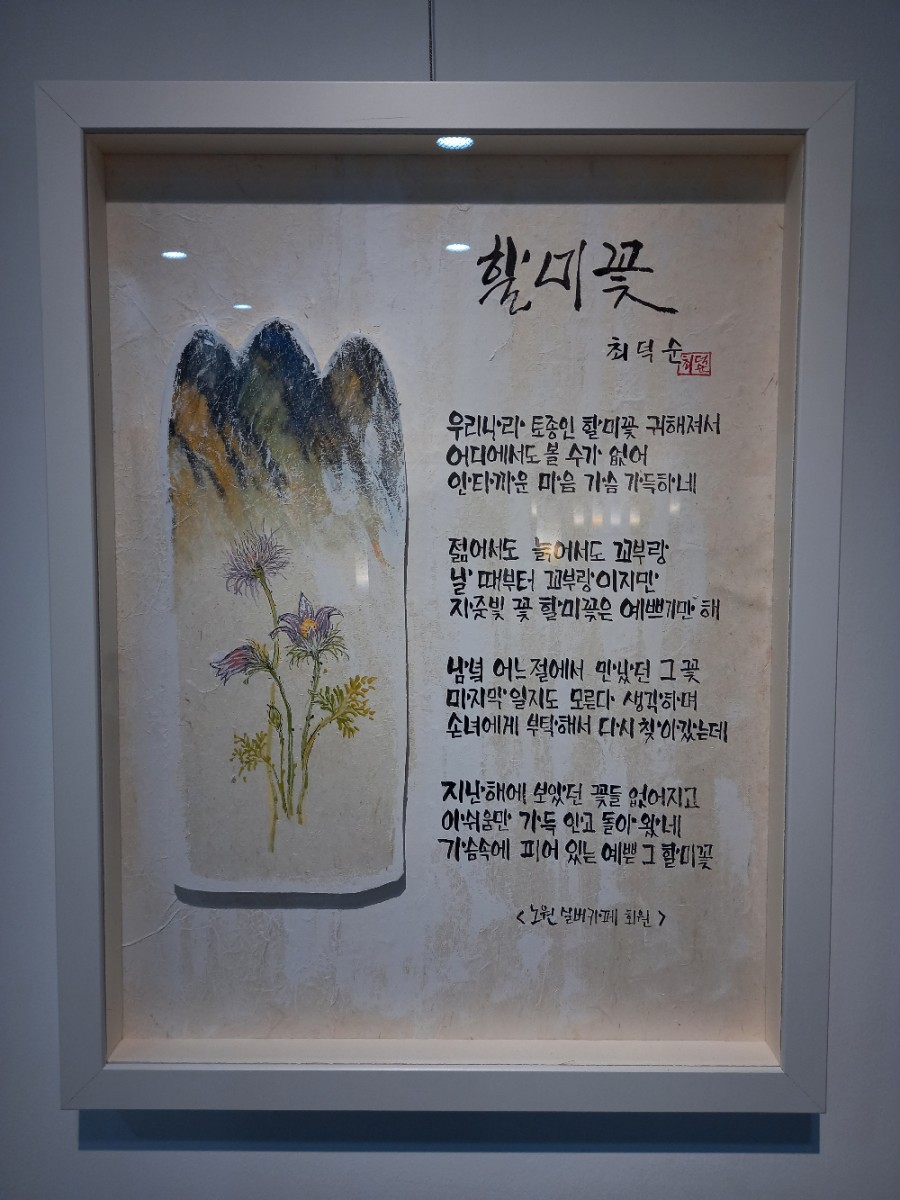 할미꽃
최덕순
우리나라 토종인 할미꽃 귀해져서
어디에서도 볼 수가 없어
안타까운 마음 가슴 가득하네
젊어서도 늙어서도 꼬부랑
날 때부터 꼬부랑이지만
자줏빛 꽃 할미꽃은 예쁘기만 해
남녘 어느절에서 만났던 그 꽃
마지막 일지도 모른다 생각하며
소녀에게 부탁해서 다시 찾아갔는데
지난해에 보았던 꽃들 없어지고
아쉬움만 가득 안고 돌아 왔네
가슴속에 피어 있는 예쁜 그 할미꽃
<노원 실버카페 회원>